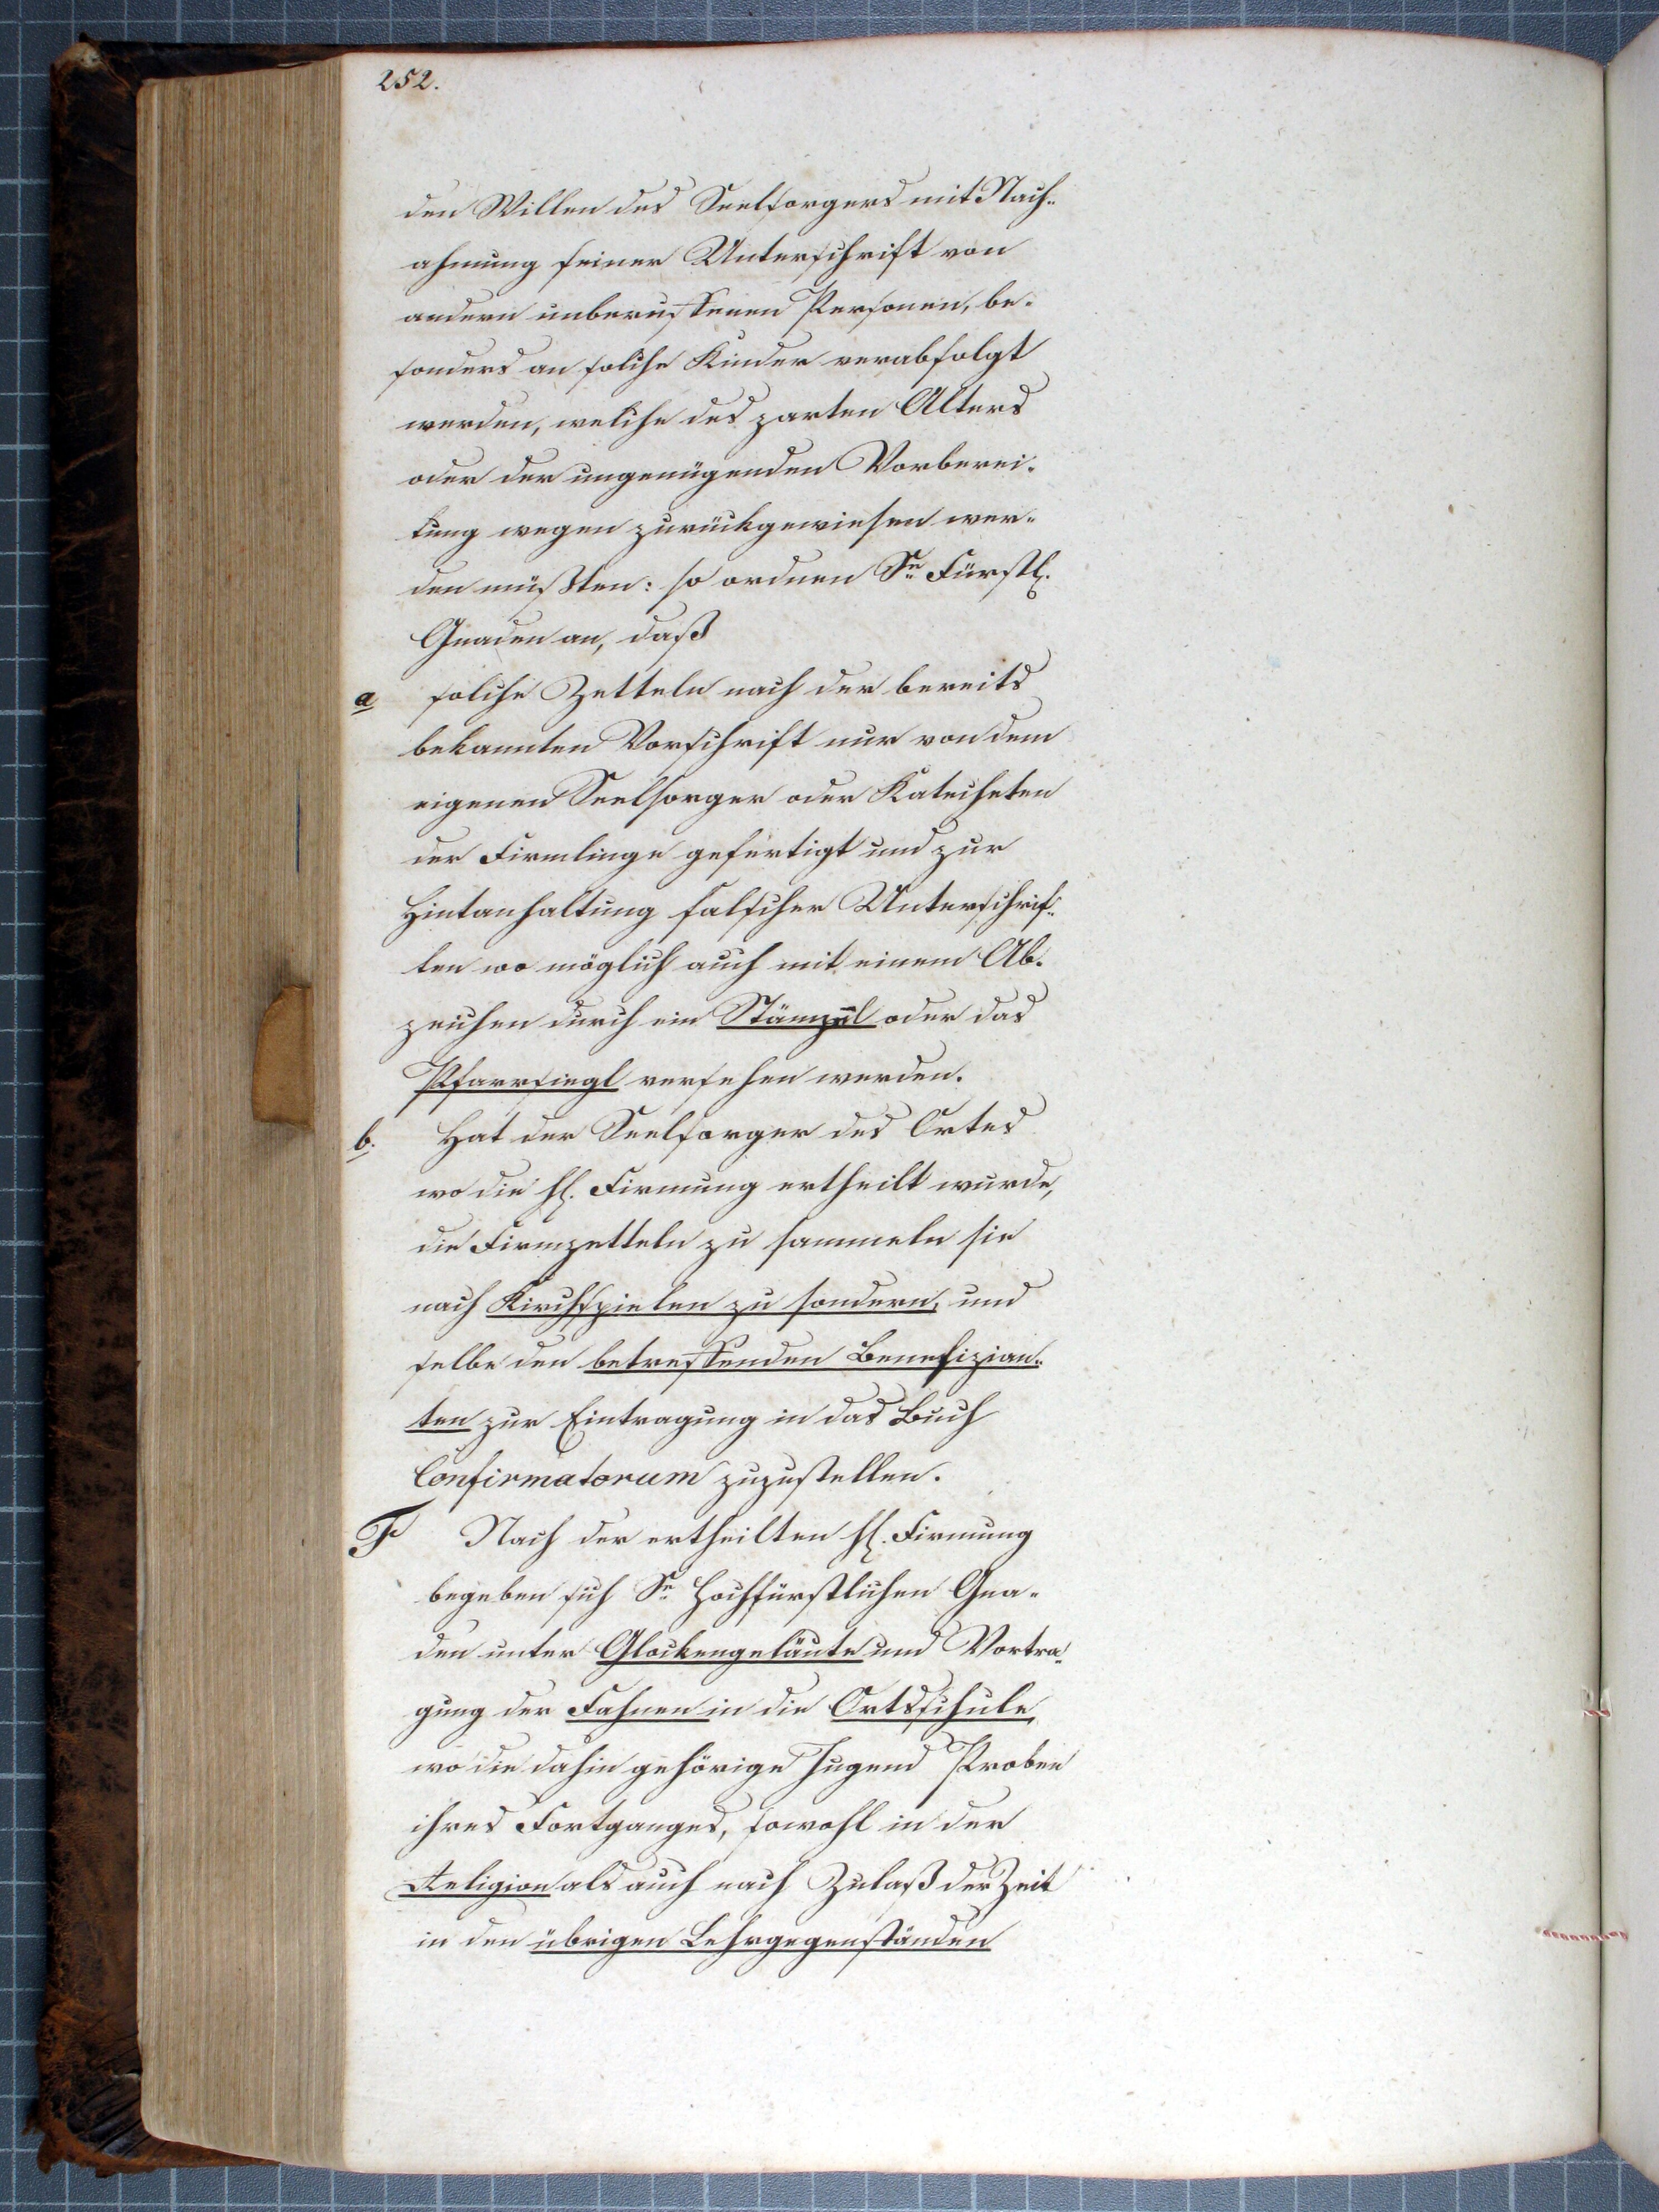 252.
den Willen des Seelsorgers mit Nach-
ahmung seiner Unterschrift von
andern unberuffenen Personen, be-
sonders an solche Kinder verabfolgt
werden, welche des zarten Alters
oder der ungenügenden Vorberei-
tung wegen zurückgewiesen wer-
den müßten: so ordnen Se Fürstl.
Gnaden an, daß
a solche Zetteln nach der bereits
bekannten Vorschrift nur von dem
eigenen Seelsorger oder Katecheten
der Firmlinge gefertigt und zur
Hintanhaltung falscher Unterschrif-
ten wo möglich auch mit einem Ab-
zeichen durch ein Stämpel oder das
Pfarrsiegl versehen werden.
b. Hat der Seelsorger des Ortes
wo die hl. Firmung ertheilt wurde,
die Firmzetteln zu sammeln sie
nach Kirchspielen zu sondern, und
selbe den betreffenden Benefizian-
ten zur Eintragung in das Buch
Confirmatorum zuzustellen.
F Nach der ertheilten hl. Firmung
begeben sich Se Hochfürstlichen Gna-
den unter Glockengeläute und Vortra-
gung der Fahnen in die Ortsschule,
wo die dahin gehörige Jugend Proben
ihres Fortganges, sowohl in der
Religion als auch nach Zulaß der Zeit
in den übrigen Lehrgegenständen